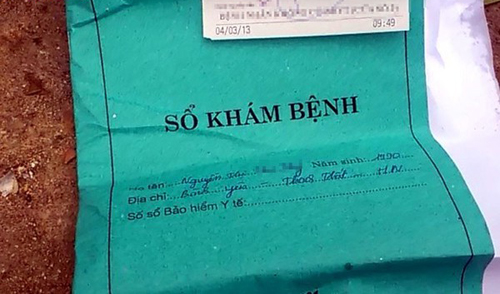 04/03/13 09:49
SỔ KHÁM BỆNH
Họ tên: Nguyễn Thị Năm sinh: 1990
Địa chỉ: Bình Yên Thạch Thất H.N
Số sổ Bảo hiểm Y tế: